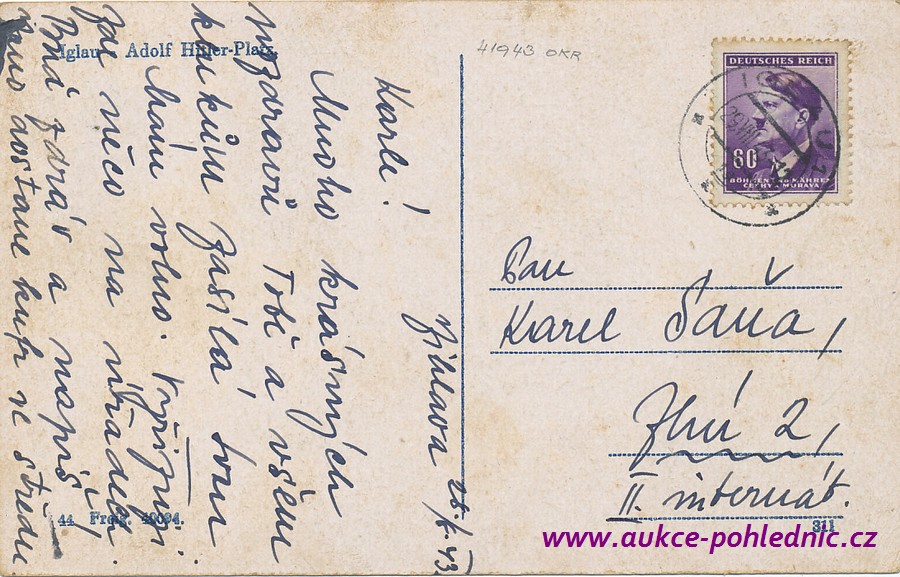 Iglau Adolf Hitler-Platz.
41943 OKR
DEUTSCHES REICH
60
BÖHMEN UND MÄHREN
ČECHY A MORAVA
Jihlava
Karle!
Mnoho krásných
pozdravů Tobě a všem
klukům zasílá
Mám volno.
zas něco na
zdráv a napiš!
dostane kufr ve středu
Pan
Karel Saňa,
Zlín 2,
II. internát.
44 Freig. 49094.
311
www.aukce-pohlednic.cz